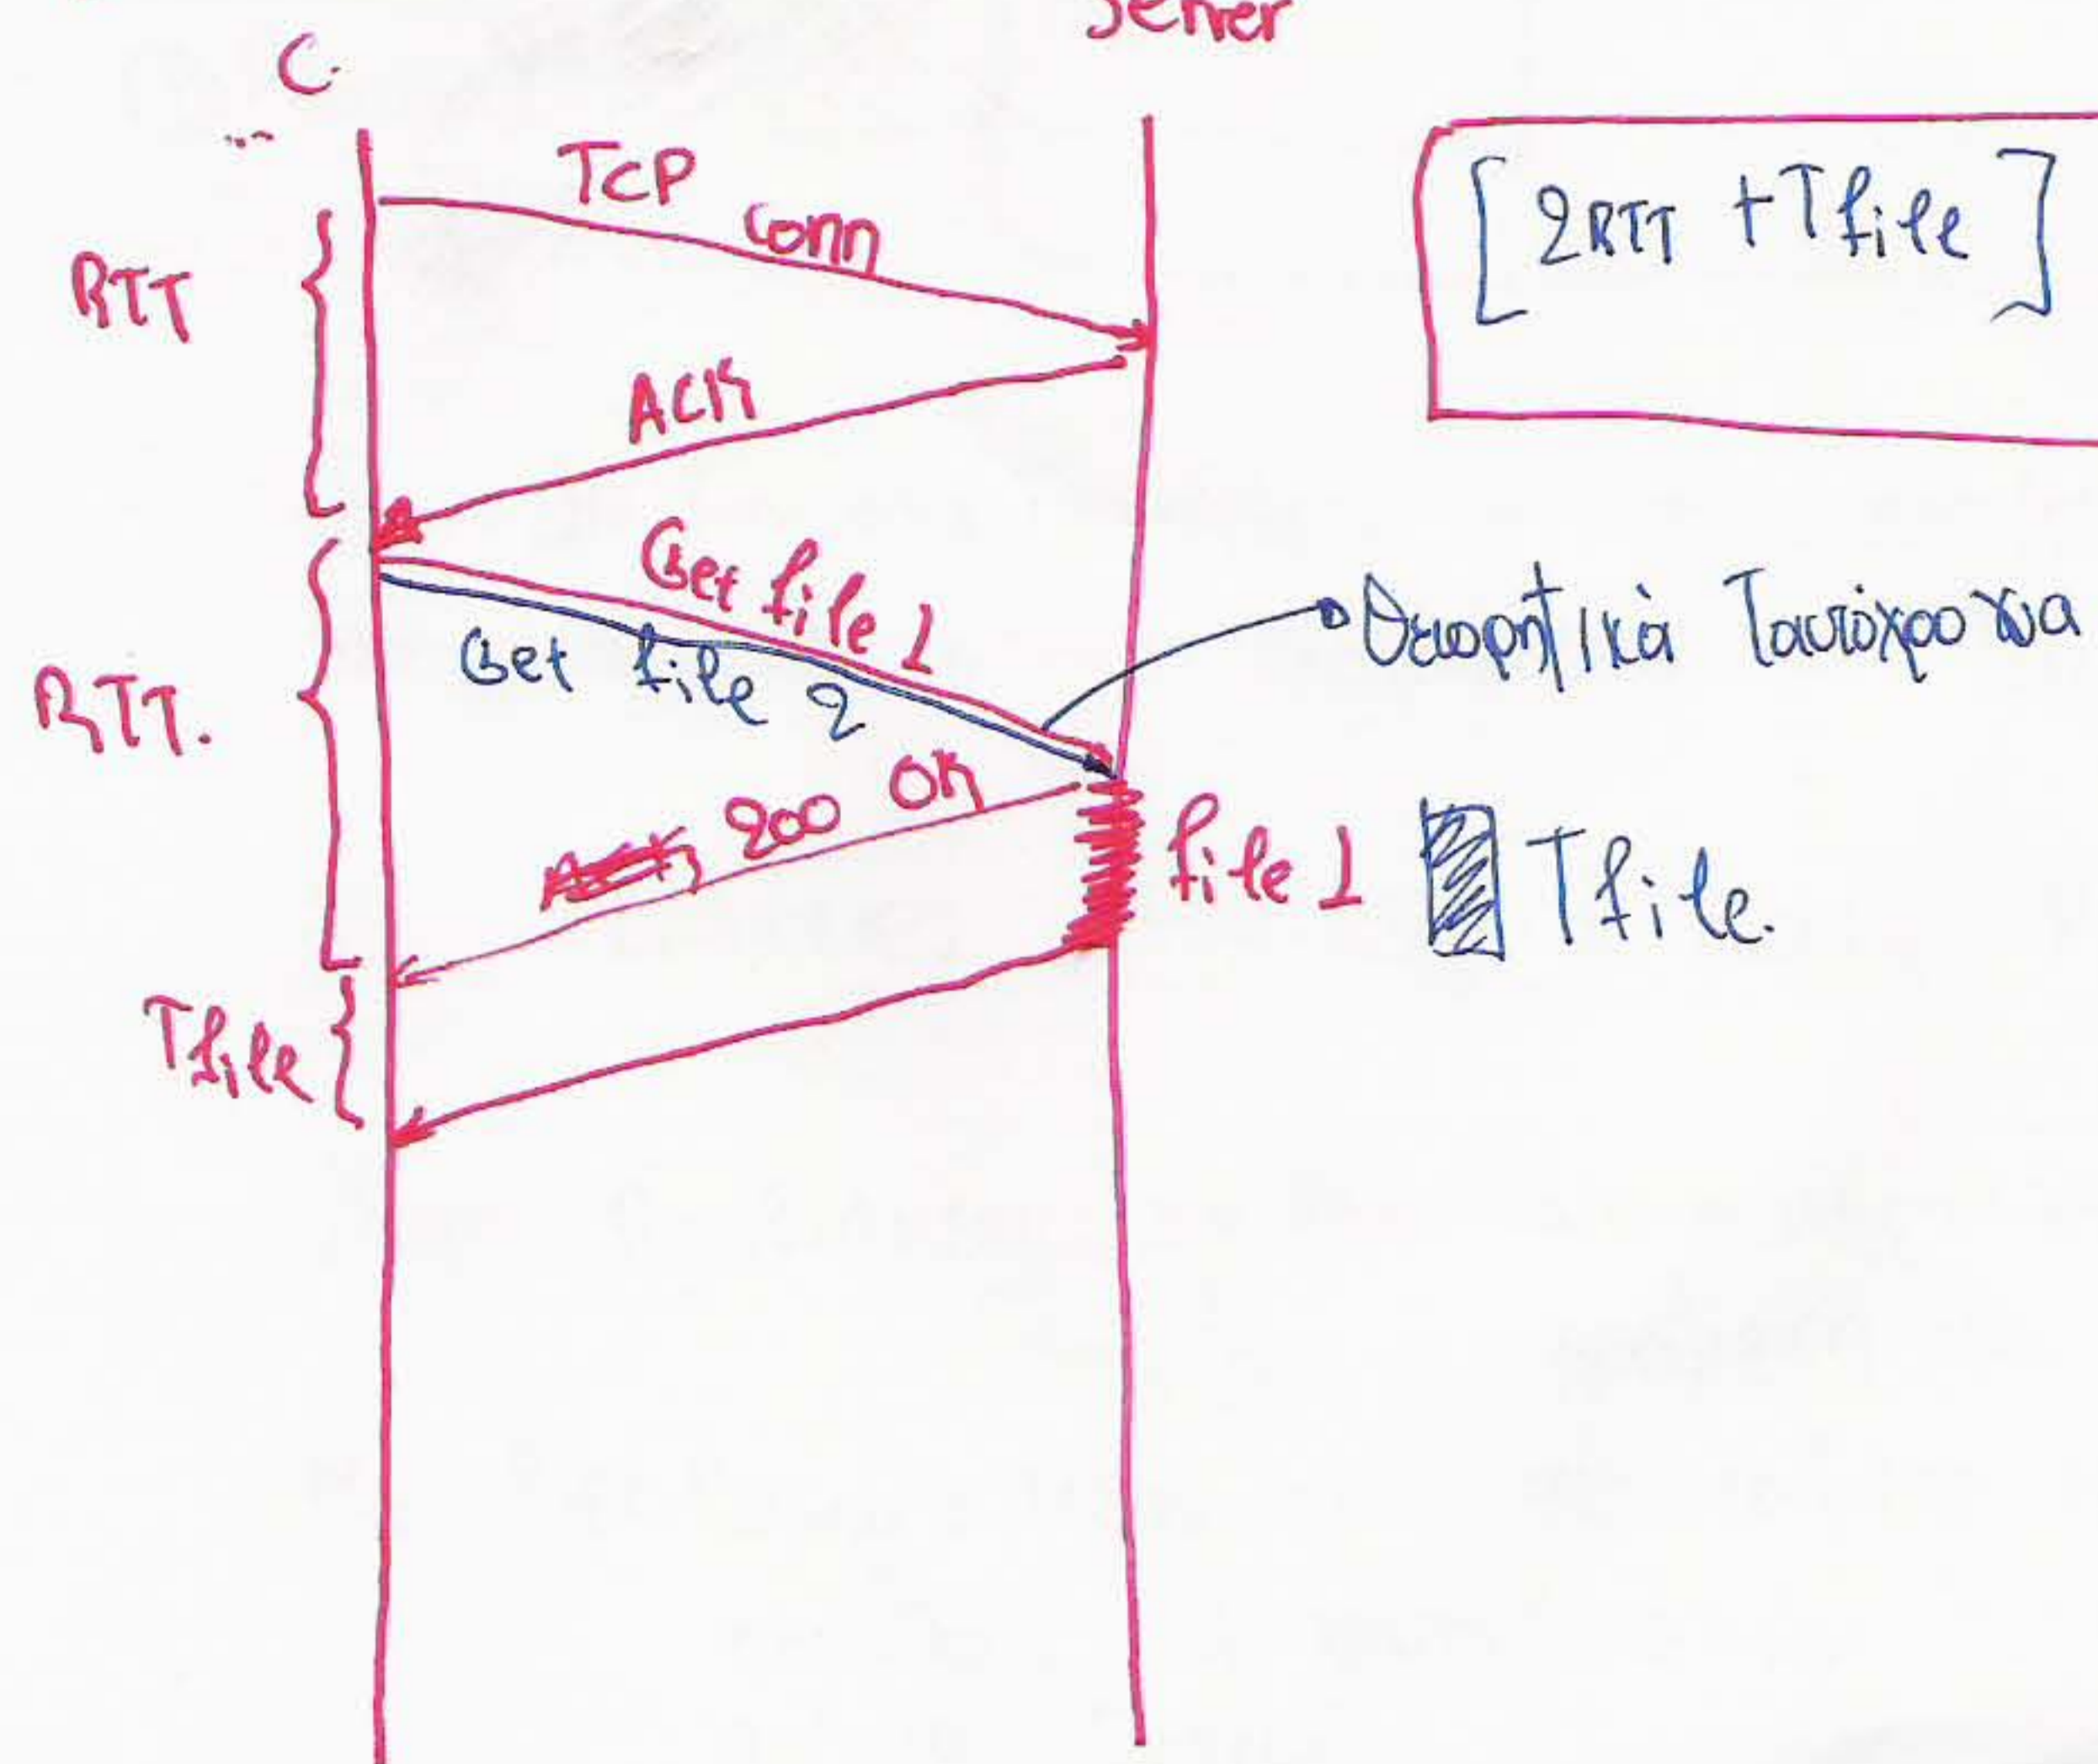 Server
C.
TCP
Conn
[2RTT + Tfile]
RTT
ACK
Get file 1
Get file 2
Θεωρητικά Ταυτόχρονα
RTT.
200 OK
file 1
Tfile.
Tfile